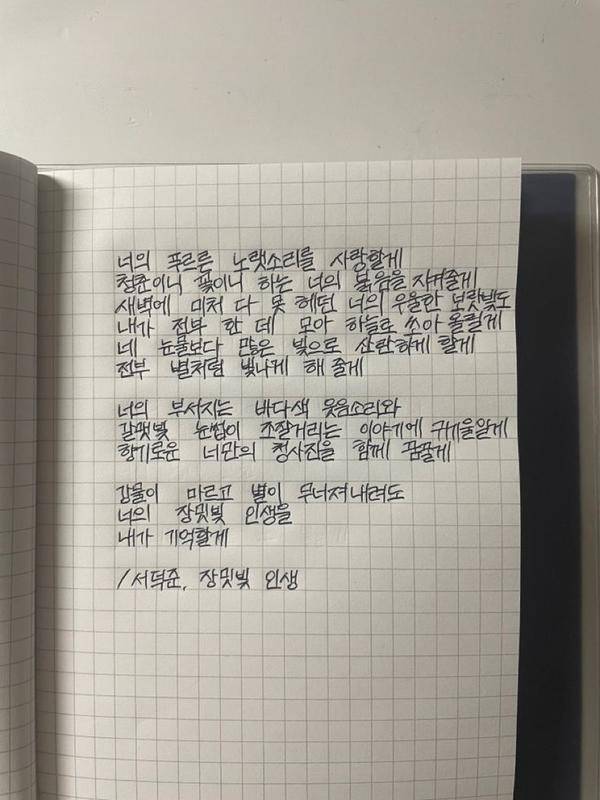 너의 푸르른 노랫소리를 사랑할게
청춘이니 꽃이니 하는 너의 붉음을 지켜줄게
새벽에 미처 다 못 헤던 너의 우울한 보랏빛도
내가 전부 한 데 모아 하늘로 쏘아 올릴게
네 눈물보다 많은 빛으로 산란하게 할게
전부 별처럼 빛나게 해 줄게
너의 부서지는 바다색 웃음소리와
갈맷빛 눈썹이 조잘거리는 이야기에 귀기울일게
향기로운 너만의 청사진을 함께 꿈꿀게
강물이 마르고 별이 무너져내려도
너의 장밋빛 인생을
내가 기억할게
/서덕준, 장밋빛 인생